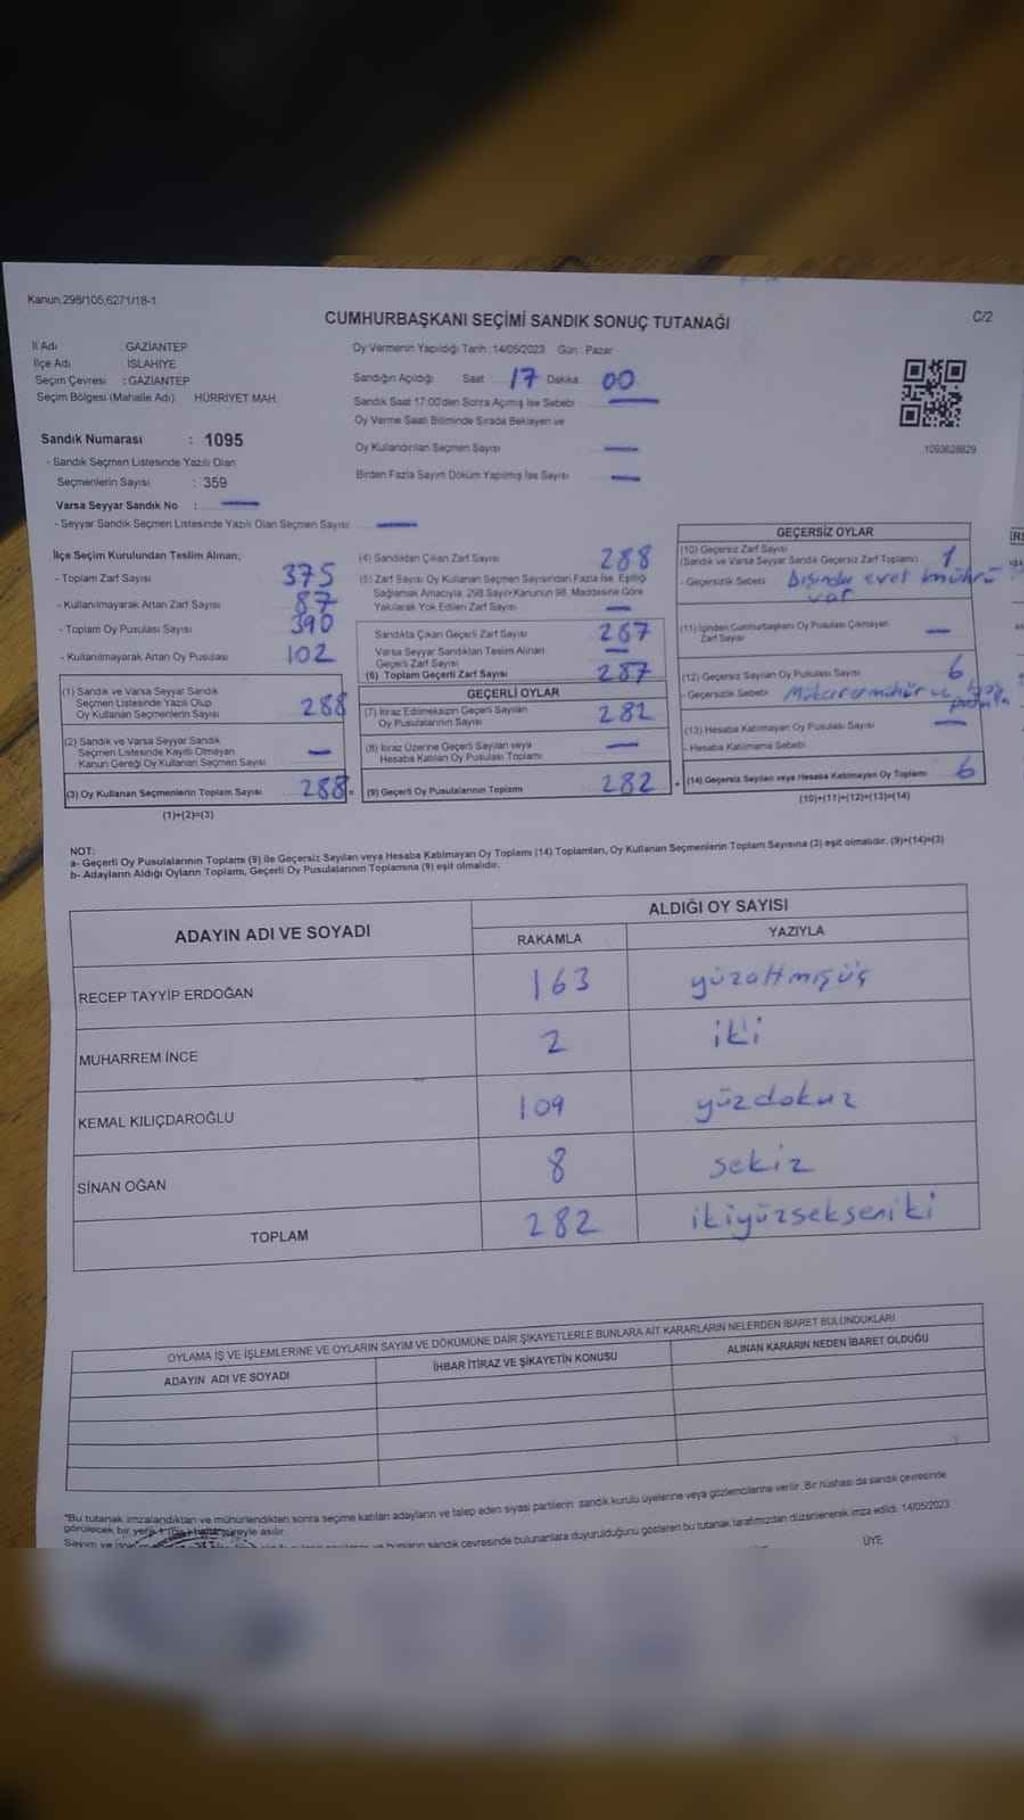 Kanun.298/105,6271/18-1
C/2
CUMHURBAŞKANI SEÇİMİ SANDIK SONUÇ TUTANAĞI
İl Adı GAZİANTEP
İlçe Adı İSLAHİYE
Seçim Çevresi : GAZİANTEP
Seçim Bölgesi (Mahalle Adı) HÜRRİYET MAH.
Oy Vermenin Yapıldığı Tarih : 14/05/2023 Gün : Pazar
Sandığın Açıldığı Saat 17 Dakika 00
Sandık Saat 17:00'den Sonra Açımış İse Sebebi
Oy Verme Saati Bitiminde Sırada Bekleyen ve
Oy Kullandırılan Seçmen Sayısı
Birden Fazla Sayım Döküm Yapılmış İse Sayısı
1093628829
Sandık Numarası : 1095
- Sandık Seçmen Listesinde Yazılı Olan
Seçmenlerin Sayısı : 359
Varsa Seyyar Sandık No :
- Seyyar Sandık Seçmen Listesinde Yazılı Olan Seçmen Sayısı
İlçe Seçim Kurulundan Teslim Alınan;
- Toplam Zarf Sayısı 375
- Kullanılmayarak Artan Zarf Sayısı 87
- Toplam Oy Pusulası Sayısı 390
- Kullanılmayarak Artan Oy Pusulası 102
(1) Sandık ve Varsa Seyyar Sandık
Seçmen Listesinde Yazılı Olup
Oy Kullanan Seçmenlerin Sayısı 288
(2) Sandık ve Varsa Seyyar Sandık
Seçmen Listesinde Kayıtlı Olmayan
Kanun Gereği Oy Kullanan Seçmen Sayısı
(3) Oy Kullanan Seçmenlerin Toplam Sayısı 288
(1)+(2)=(3)
(4) Sandıktan Çıkan Zarf Sayısı 288
(5) Zarf Sayısı Oy Kullanan Seçmen Sayısından Fazla İse, Eşitliği
Sağlamak Amacıyla, 298 Sayılı Kanunun 98. Maddesine Göre
Yakılarak Yok Edilen Zarf Sayısı
Sandıkta Çıkan Geçerli Zarf Sayısı 287
Varsa Seyyar Sandıktan Teslim Alınan
Geçerli Zarf Sayısı
(6) Toplam Geçerli Zarf Sayısı 287
GEÇERLİ OYLAR
(7) İtiraz Edilmeksizin Geçerli Sayılan
Oy Pusulalarının Sayısı 282
(8) İtiraz Üzerine Geçerli Sayılan veya
Hesaba Katılan Oy Pusulası Toplamı
(9) Geçerli Oy Pusulalarının Toplamı 282
GEÇERSİZ OYLAR
(10) Geçersiz Zarf Sayısı
(Sandık ve Varsa Seyyar Sandık Geçersiz Zarf Toplamı) 1
- Geçersizlik Sebebi Dışında evet mührü
var
(11) İçinden Cumhurbaşkanı Oy Pusulası Çıkmayan
Zarf Sayısı
(12) Geçersiz Sayılan Oy Pusulası Sayısı 6
- Geçersizlik Sebebi
(13) Hesaba Katılmayan Oy Pusulası Sayısı
- Hesaba Katılmama Sebebi
(14) Geçersiz Sayılan veya Hesaba Katılmayan Oy Toplamı 6
(10)+(11)+(12)+(13)=(14)
NOT:
a- Geçerli Oy Pusulalarının Toplamı (9) ile Geçersiz Sayılan veya Hesaba Katılmayan Oy Toplamı (14) Toplamları, Oy Kullanan Seçmenlerin Toplam Sayısına (3) eşit olmalıdır. (9)+(14)=(3)
b- Adayların Aldığı Oyların Toplamı, Geçerli Oy Pusulalarının Toplamına (9) eşit olmalıdır.
ADAYIN ADI VE SOYADI
ALDIĞI OY SAYISI
RAKAMLA YAZIYLA
RECEP TAYYİP ERDOĞAN 163 yüzaltmışüç
MUHARREM İNCE 2 iki
KEMAL KILIÇDAROĞLU 109 yüzdokuz
SİNAN OĞAN 8 sekiz
TOPLAM 282 ikiyüzsekseniki
OYLAMA İŞ VE İŞLEMLERİNE VE OYLARIN SAYIM VE DÖKÜMÜNE DAİR ŞİKAYETLERLE BUNLARA AİT KARARLARIN NELERDEN İBARET BULUNDUKLARI
ADAYIN ADI VE SOYADI İHBAR İTİRAZ VE ŞİKAYETİN KONUSU ALINAN KARARIN NEDEN İBARET OLDUĞU
"Bu tutanak imzalandıktan ve mühürlendikten sonra seçime katılan adayların ve talep eden siyasi partilerin sandık kurulu üyelerine veya gözlemcilerine verilir. Bir nüshası da sandık çevresinde
görülecek bir yere süreyle asılır
Sayım ve sandık çevresinde bulunanlara duyurulduğunu gösteren bu tutanak tarafımızdan düzenlenerek imza edildi. 14/05/2023
ÜYE